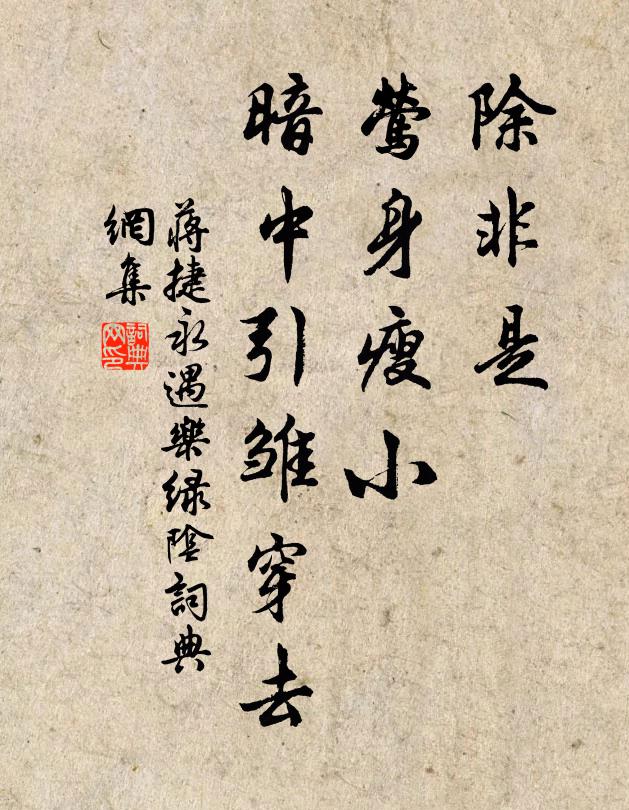 除非是
鶯身瘦小
暗中引雏穿去
蔣捷永遇樂绿陰詞典
網集
詞典
网印